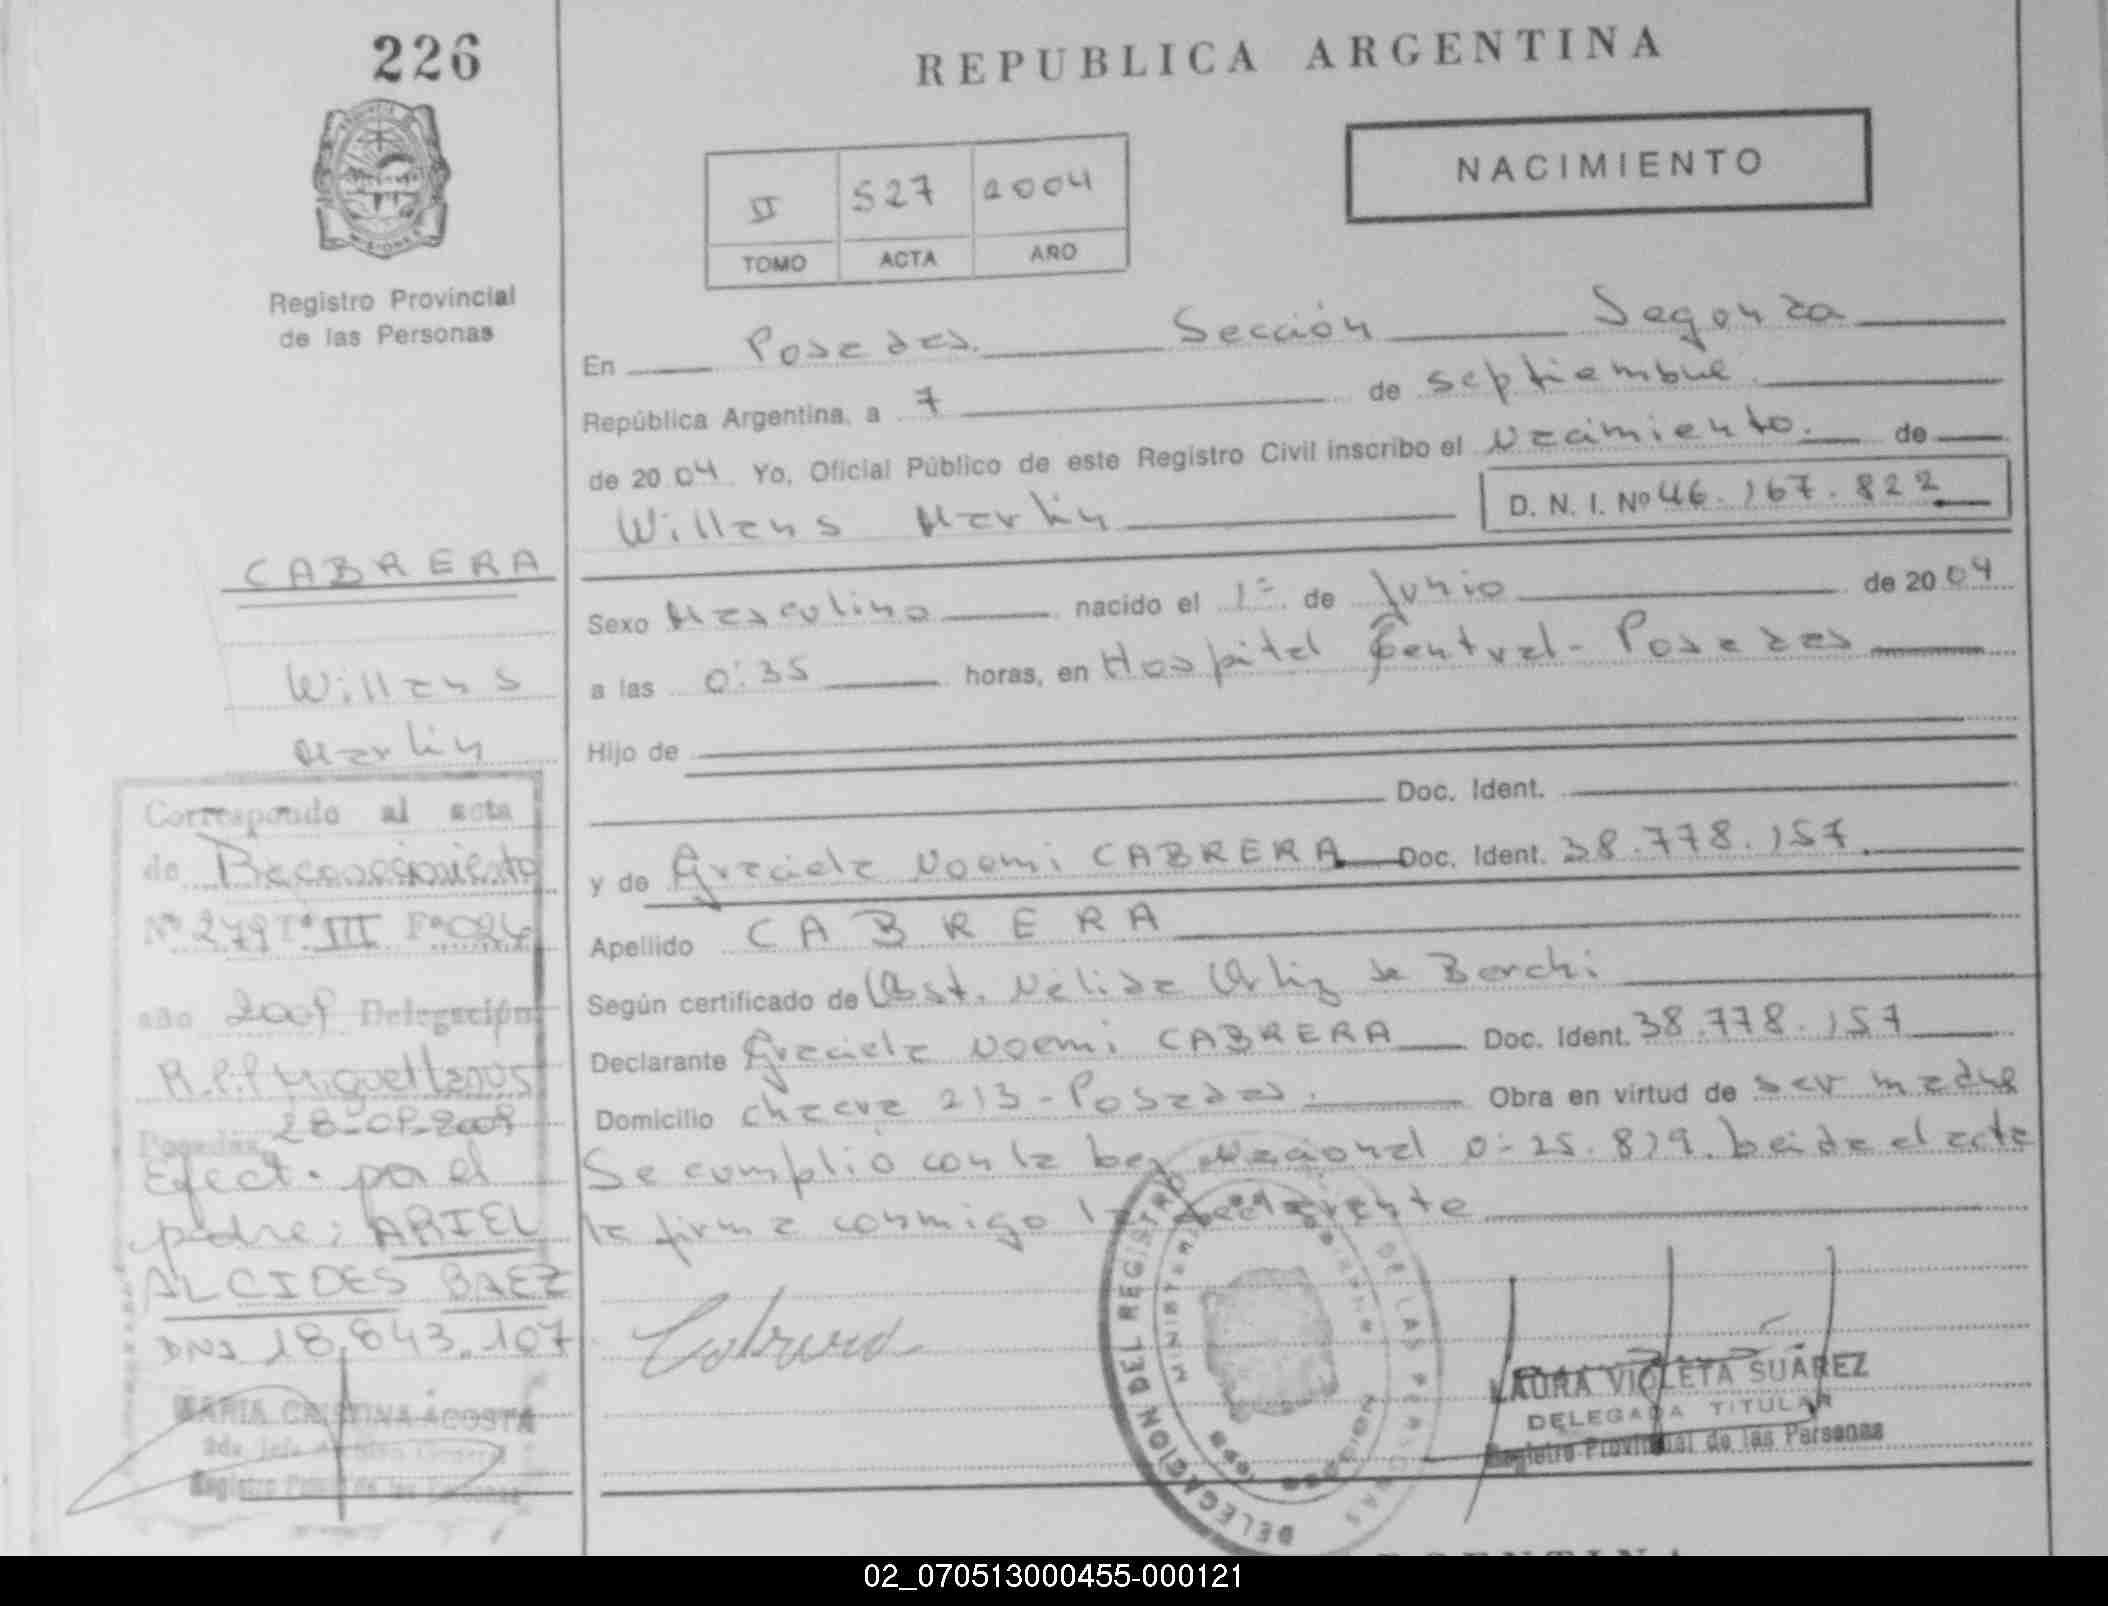 226
REPUBLICA ARGENTINA
NACIMIENTO
II 527 2004
TOMO ACTA AÑO
Registro Provincial
de las Personas
En Posadas. Sección Segunda
República Argentina, a 7 de septiembre
de 2004 Yo, Oficial Público de este Registro Civil inscribo el Nacimiento. de
Willans Martin D. N. I. Nº 46.167.822
Sexo Masculino nacido el 1º de Junio de 2004
a las 0:35 horas, en Hospital Central - Posadas
Hijo de
Doc. Ident.
y de Graciela Noemi CABRERA Doc. Ident. 38.778.157
Apellido CABRERA
Según certificado de Obst. Nélida Ortiz de Borchi
Declarante Graciela Noemi CABRERA Doc. Ident. 38.778.157
Domicilio chacra 213 - Posadas. Obra en virtud de ser madre
Se cumplió con la Ley Nacional Nº 25.819. Leida el acta
la firma conmigo la declarante
Cabrera
CABRERA
Willans
Martin
Correspondo al acta
de Reconocimiento
Nº 279 Tº III Fº 024
año 2009 Delegación
R.P.P Miguel Lanus
Posadas, 28-08-2009
Efect. por el
padre: ARIEL
ALCIDES BAEZ
DNI 18.843.107
MARIA CRISTINA ACOSTA
Registro Provincial de las Personas
DELEGACION DEL REGISTRO DE LAS PERSONAS
LAURA VIOLETA SUÁREZ
DELEGADA TITULAR
Registro Provincial de las Personas
02_070513000455-000121